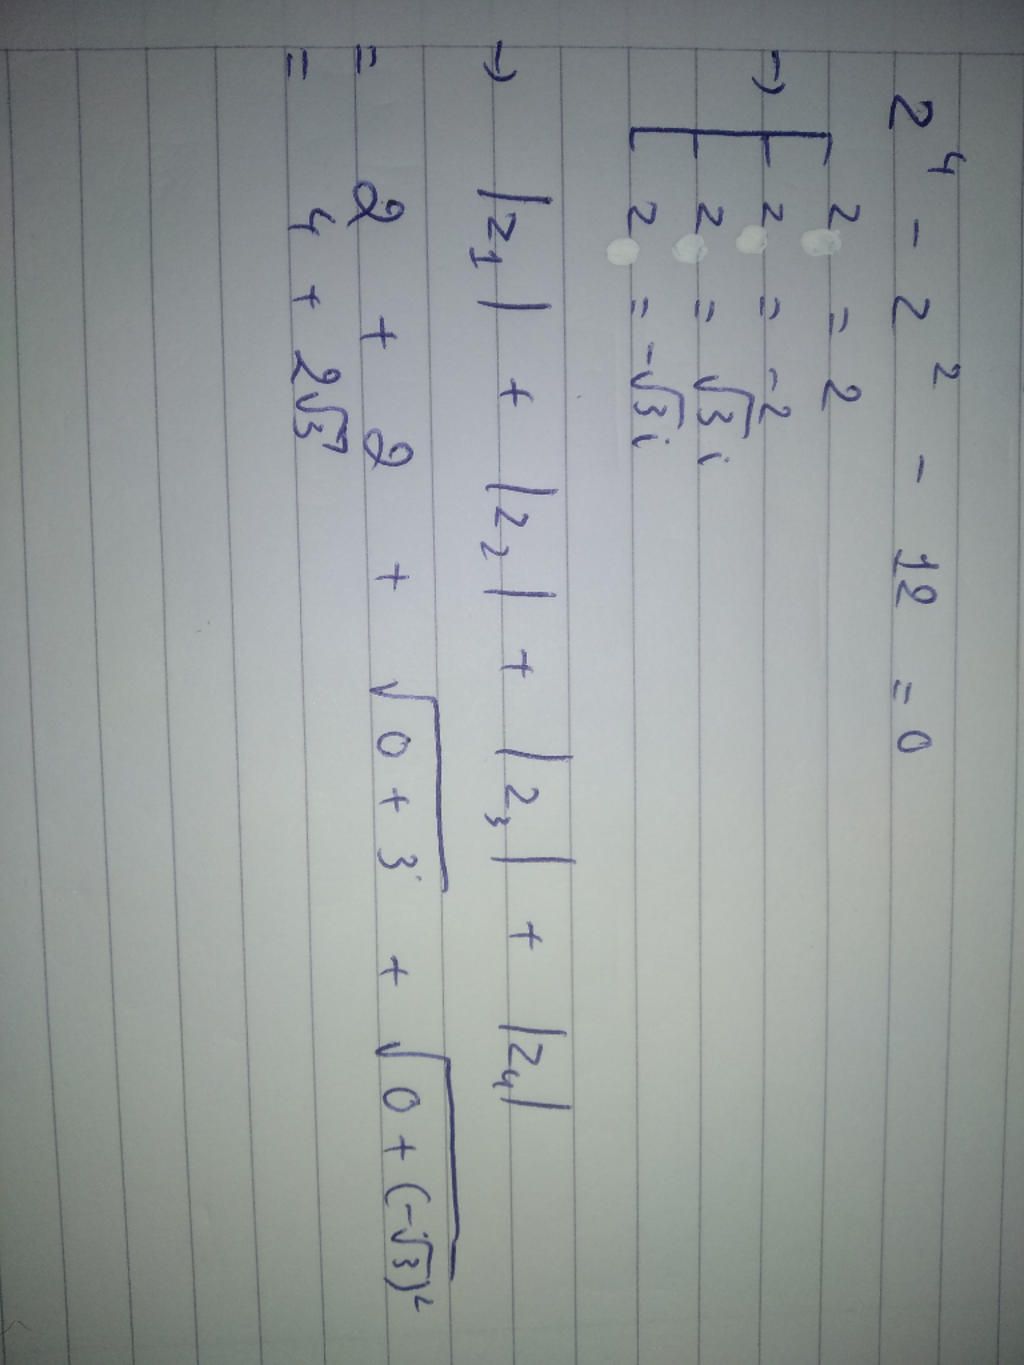 z⁴ - z² - 12 = 0
→ [ z = 2
z = -2
z = √3 i
z = -√3 i
→ |z₁| + |z₂| + |z₃| + |z₄|
= 2 + 2 + √(0 + 3) + √(0 + (-√3)²)
= 4 + 2√3